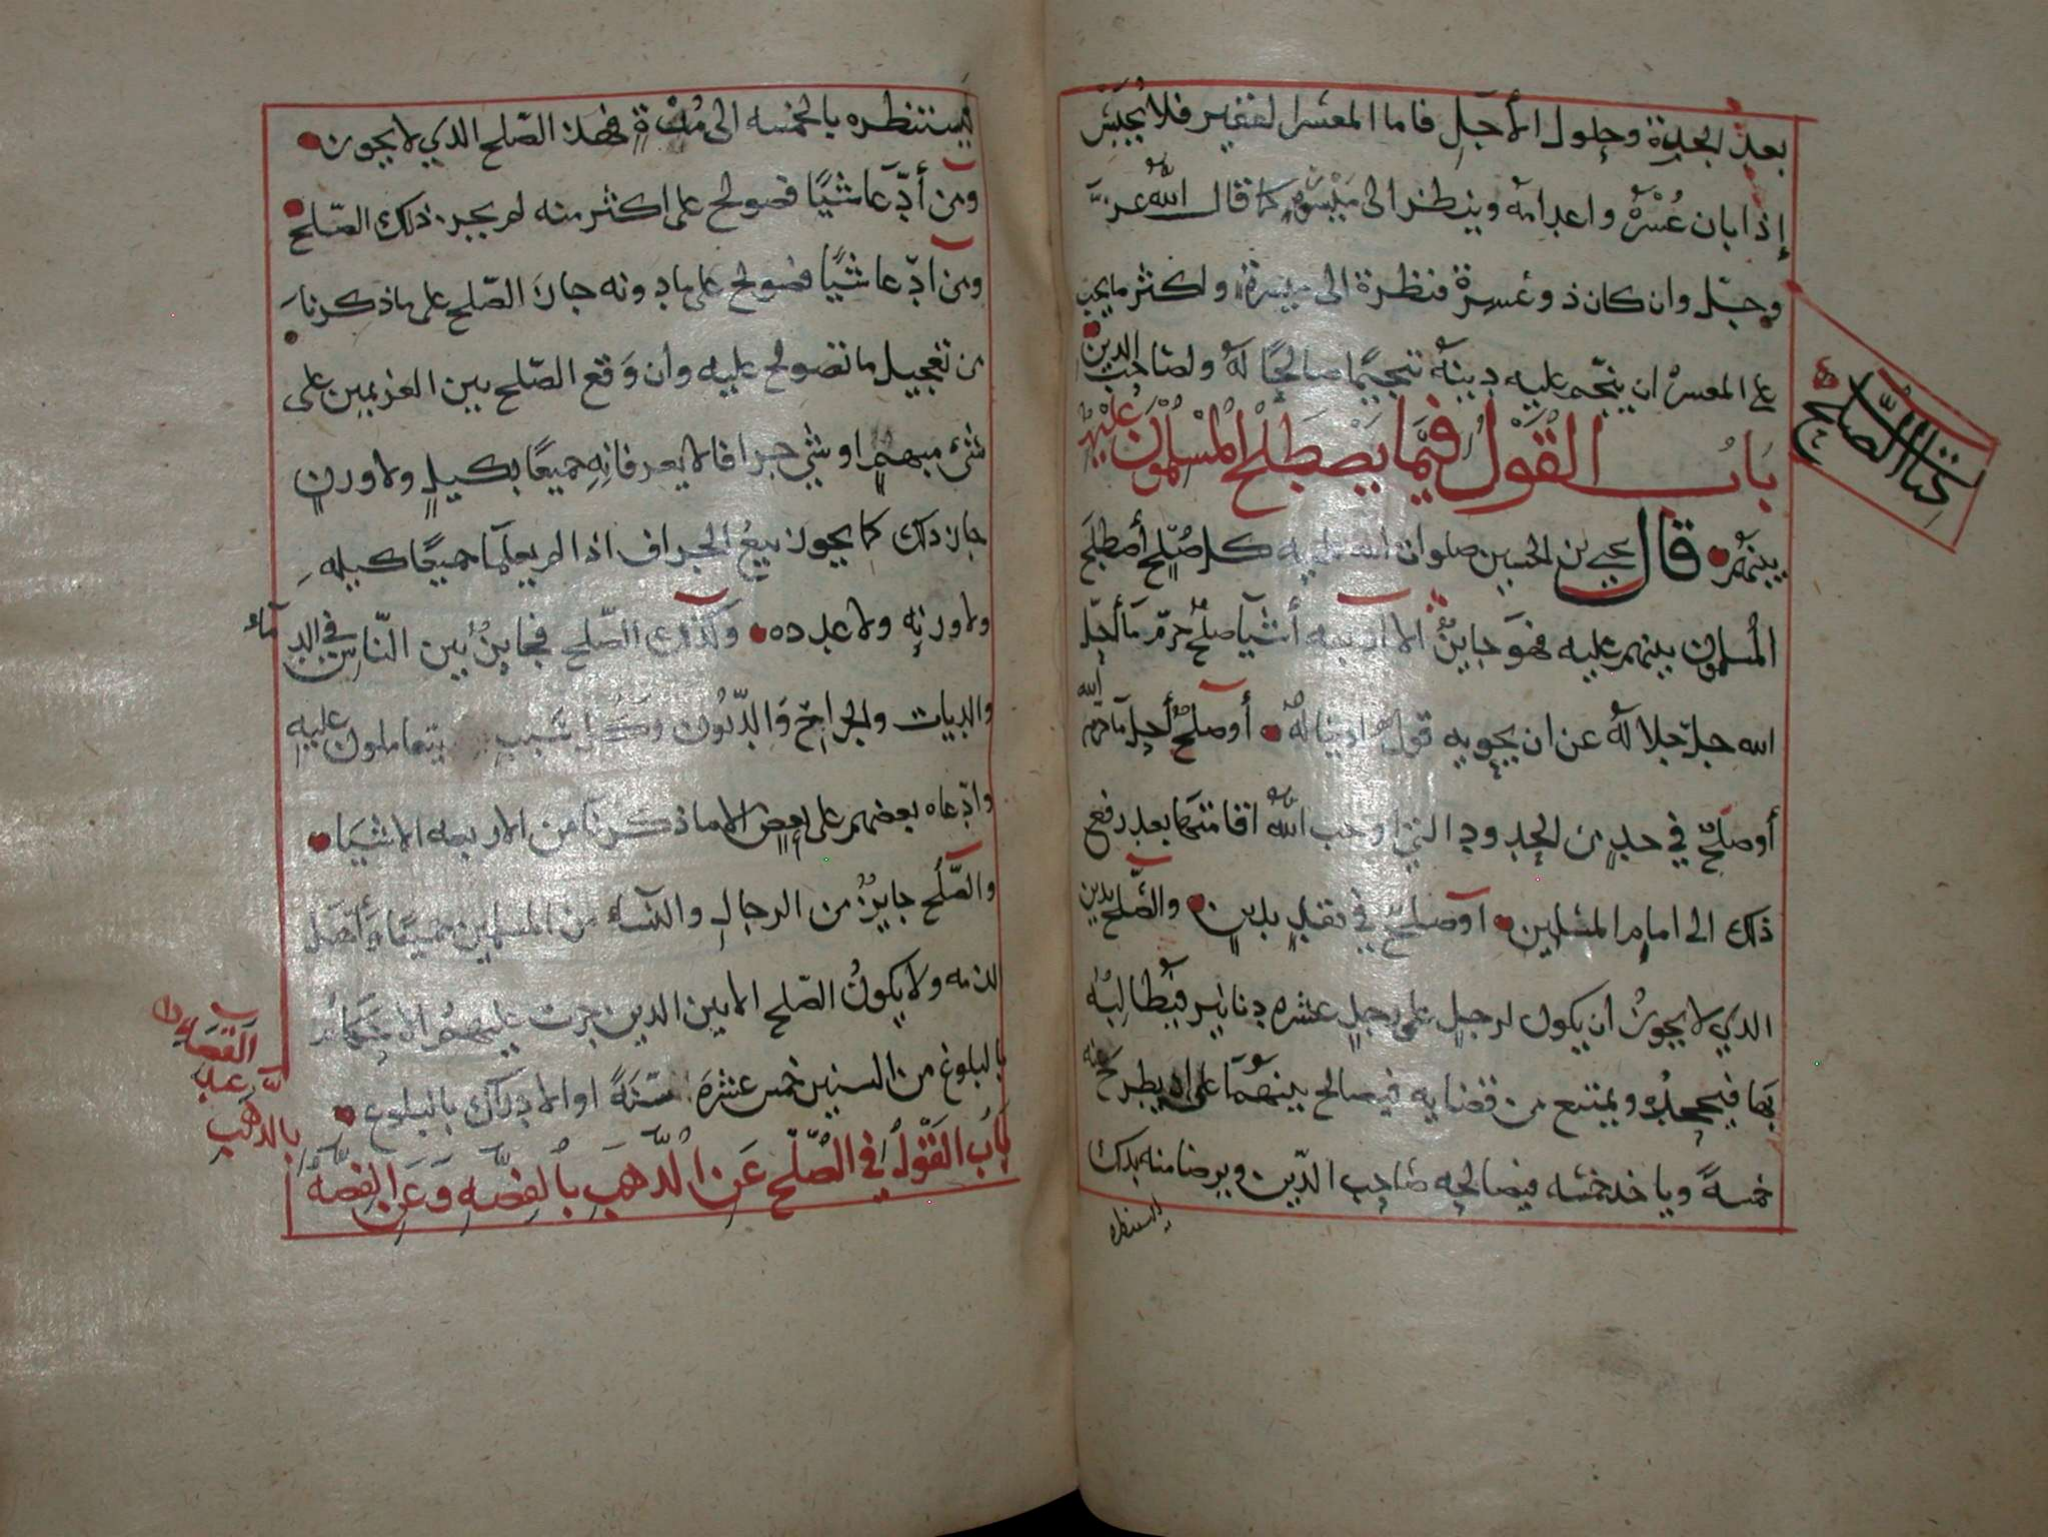 بعد الجدة وحلول الأجل فاما المعسر الفقير فلا يحبس
إذا بان عُسْرُه واعدامه وينظر الى ميسوره كما قال الله عز
وجل وان كان ذو عسرة فنظرة الى ميسرة ولكثر ما يجب
على المعسر ان ينجم عليه دينه تنجيمًا صالحًا له ولصاحب الدين
كتاب الصلح
باب القول فيما يصطلح المسلمون عليه
بينهم قال يحيى بن الحسين صلوات الله عليه كل صلح أصطلح
المسلمون بينهم عليه فهو جايز الا اربعه أشيا صلح حرم ما أحل
الله جل جلاله عن ان يحويه قول او يناله أو صلح أحل ما حرم الله
أو صلح في حد من الحدود التي اوجب الله اقامتها بعد رفع
ذلك الى امام المسلمين أو صلح في نقد بدين والصلح بدين
الذي لا يجوز أن يكون لرجل على رجل عشره دنانير فيطالبه
بها فيجحده ويمتنع من قضايه فيصالح بينهما على ان يطرح عنه
خمسة وياخذ خمسه فيصالحه صاحب الدين ويرضا منه بذلك
فيستنظره
فيستنظره بالخمسه الى مدة فهذا الصلح الذي لا يجوز
ومن أدّعا شيًا فصولح على اكثر منه لم يجز ذلك الصلح
ومن ادّعا شيًا فصولح على ما دونه جاز الصلح على ما ذكرنا
من تعجيل ما تصولح عليه وان وقع الصلح بين الغريمين على
شيء مبهم او شي جزافا لا يعرفانه جميعًا بكيل ولا وزن
جاز ذلك كما يجوز بيع الجزاف اذا لم يعلما جميعًا كيله
ولا وزنه ولا عدده وكذلك الصلح فجايز بين الناس في الدماء
والديات والجراح والديون وكل سبب يتعاملون عليه
وادعاه بعضهم على بعض الا ما ذكرنا من الاربعه الاشيا
والصلح جايز من الرجال والنساء من المسلمين جميعًا وأهل
الذمه ولا يكون الصلح الا بين الذين جرت عليهم الاحكام
بالبلوغ من السنين خمس عشره سنة او الادراك بالبلوغ
باب القول في الصلح عن الذهب بالفضه وعن الفضه
بالذهب